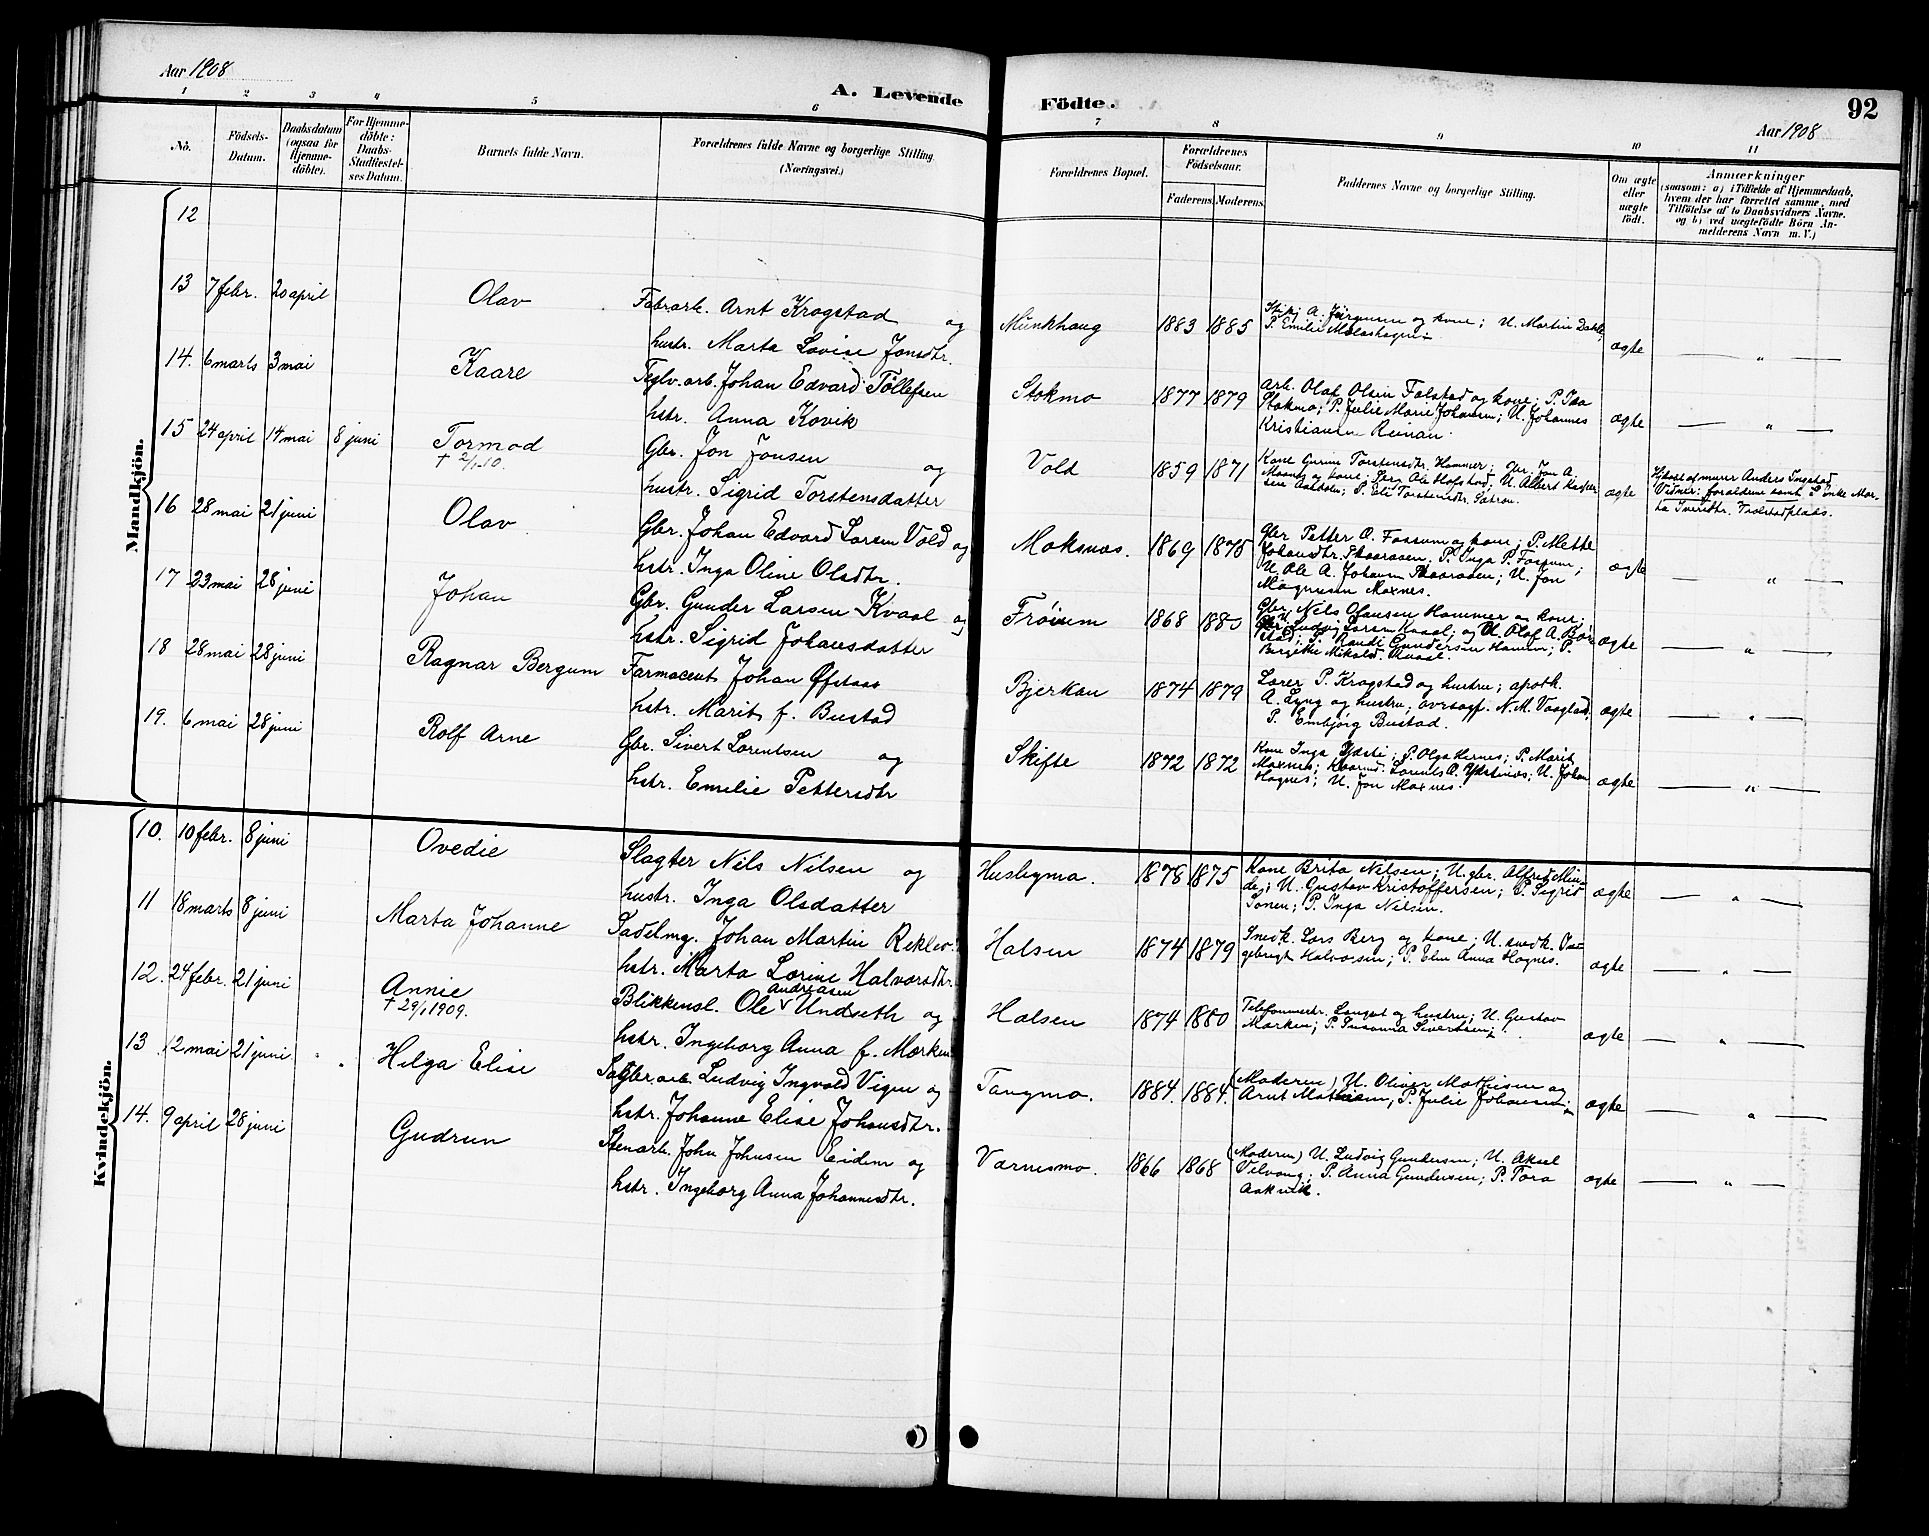 Aar 1908
A. Levende Födte.
92
Aar 1908
1 2 3 4 5 6 7 8 9 10 11
No.
Födsels-Datum.
Daabsdatum (ogsaa for Hjemme-döbte).
For Hjemme-döbte: Daabs-Stadfæstel-ses Datum.
Barnets fulde Navn.
Forældrenes fulde Navne og borgerlige Stilling. (Næringsvei.)
Forældrenes Bopæl.
Forældrenes Födselsaar.
Faderens. Moderens.
Faddernes Navne og borgerlige Stilling.
Om ægte eller uægte födt.
Anmærkninger
(saasom: a) i Tilfælde af Hjemmedaab, hvem der har forrettet samme, med Tilföielse af to Daabsvidners Navne. og b) ved uægtefödte Börn An-melderens Navn m. V.)
Mandkjön.
12
13 7 febr. 20 april Olav Fabr.arb. Arnt Krogstad og
hustr. Marta Lovise Jonsdtr. Munkhaug 1883 1885 A. Jörgensen og kone; U. Martin Dahle; P. Emilie ægte — " —
14. 6 marts 3 mai Kaare Teglv.arb. Johan Edvard Tøllefsen
hstr. Anna Kovik Stokmo 1877 1879 Arb. Olaf Olsen Folstad og kone; P. Ida
Stokmo; P. Julie Marie Johansen; U. Johannes
Kristiansen Reinan. ægte — " —
15 24 april 14 mai 8 juni Tormod
† 2/1-10.
Gbr. Jon Jonsen og
hustr. Sigrid Torstensdatter Vold 1859 1871 Kone Gurine Torstensdtr. Hammer; Gbr. Jon A.
Moxnes og kone; Ole Hofstad; U. Albert
P. Eli Torstensdtr. ægte Hjdøbt af murer Anders Ingstad
Vidner: forældrene samt Enke Mar-
ta Iversdtr. Trolstadplads.
16 28 mai 21 juni Olav Gbr. Johan Edvard Larsen Vold og
hstr. Inga Oline Olsdtr. Moksnes. 1869 1875 Gbr Petter O. Fossum og kone; P. Mette
Johansdtr. Skaaraasen; P. Inga P. Fossum;
U. Ole A. Johansen Skaaraasen; U. Jon
Magnusen Moxnes. ægte — " —
17 23 mai 28 juni Johan Gbr. Gunder Larsen Kvaal og
hstr. Sigrid Johansdatter Frøisem 1868 1880 Gbr. Nils Olausen Hammer og kone;
Ludvig Larsen Kvaal; og U. Olaf A. Bor-
stad; P. Randi Gundersen P.
Birgitte Kvaal. ægte — " —
18 28 mai 28 juni Ragnar Bergum Farmaceut Johan Øfstaas
hstr. Marit f. Bustad Bjerkan 1874 1879 Lærer P. Krogstad og hustru; apoth.
A. Lyng og hustru; N. M. Vaagland;
P. Embjørg Bustad. ægte — " —
19. 6 mai 28 juni Rolf Arne Gbr. Sivert Lorentsen og
hstr. Emilie Pettersdtr Skifte 1872 1872 Kone Inga Ydsti; P. Olga Hernes; P. Marit
Moxnes; Lorents A. Ydstines; U. Johan
Hognes; U. Jon Moxnes. ægte — " —
Kvindekjön.
10. 10 febr. 8 juni Ovedie Slagter Nils Nilsen og
hustr. Inga Olsdatter Husbymo. 1878 1875 Kone Brita Nilsen; U. gbr. Alfred Min-
de; U. Gustav Kristoffersen; P. Sigrid
Sonen; P. Inga Nilsen. ægte — " —
11 18 marts 8 juni Marta Johanne Sadelmg. Johan Martin Reklev.
hstr. Marta Lorine Halvorsdtr. Halsen 1874 1879 Snedk. Lars Berg og kone; U. snedk. In-
gebrigt Halvorsen; P. Elen Anna Hognes. ægte — " —
12. 24 febr. 21 juni Annie
† 29/1 1909.
Blikkensl. Ole Andreasen Undseth og
hstr. Ingeborg Anna f. Marken Halsen 1874 1880 Telefonmstr. og hustru; U. Gustav
Marken; P. Susanna Sivertsen; ægte — " —
13 12 mai 21 juni Helga Elise Ludvig Ingvald Vigen og
hstr. Johanne Elise Johansdtr. Tangmo. 1884. 1884. (Moderen) U. Oliver Mathisen og
Arnt Mathisen; P. Julie Johansen; ægte — " —
14. 9 april 28 juni Gudrun Stenarb. John Johnsen Eidem og
hstr. Ingeborg Anna Johannesdtr. Værnesmo. 1866 1868 (Moderen) U. Ludvig Gundersen; U. Aksel
Velvang; P. Anna Gundersen; P. Tora
Aakvik. ægte — " —